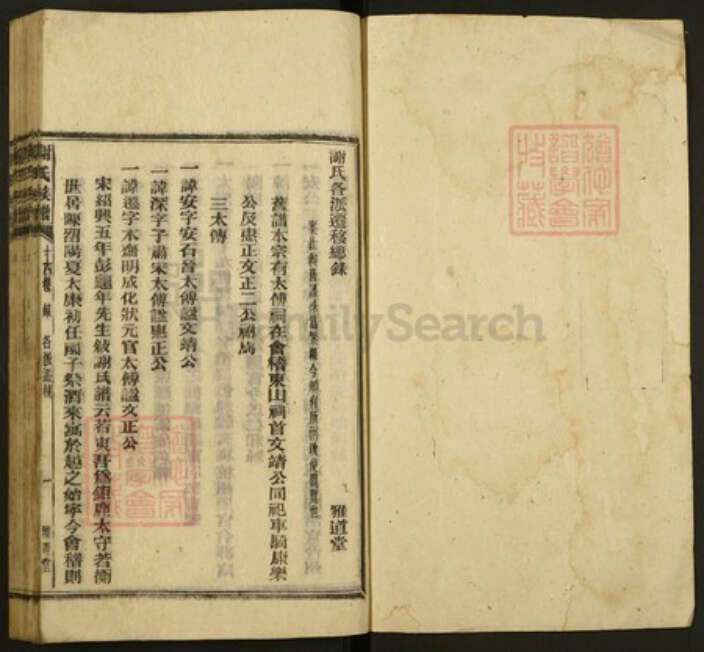 謝氏各派遷移總錄 雅道堂
舊譜本宗有太傅祠在會稽東山祠首文靖公同祀車騎康樂
公及惠正文正二公祠焉
三太傅
一諱安字安石晉太傅諡文靖公
一諱深字子肅宋太傅諡惠正公
一諱遷字木齋明成化狀元官太傅諡文正公
宋紹興五年彭龜年先生敘謝氏譜云若夷吾為鉅鹿太守若衡
世居陳沼陽夏太康初任國子祭酒來寓於越之始寧今會稽則
謝氏族譜 各派遷移 一 雅道堂
FamilySearch